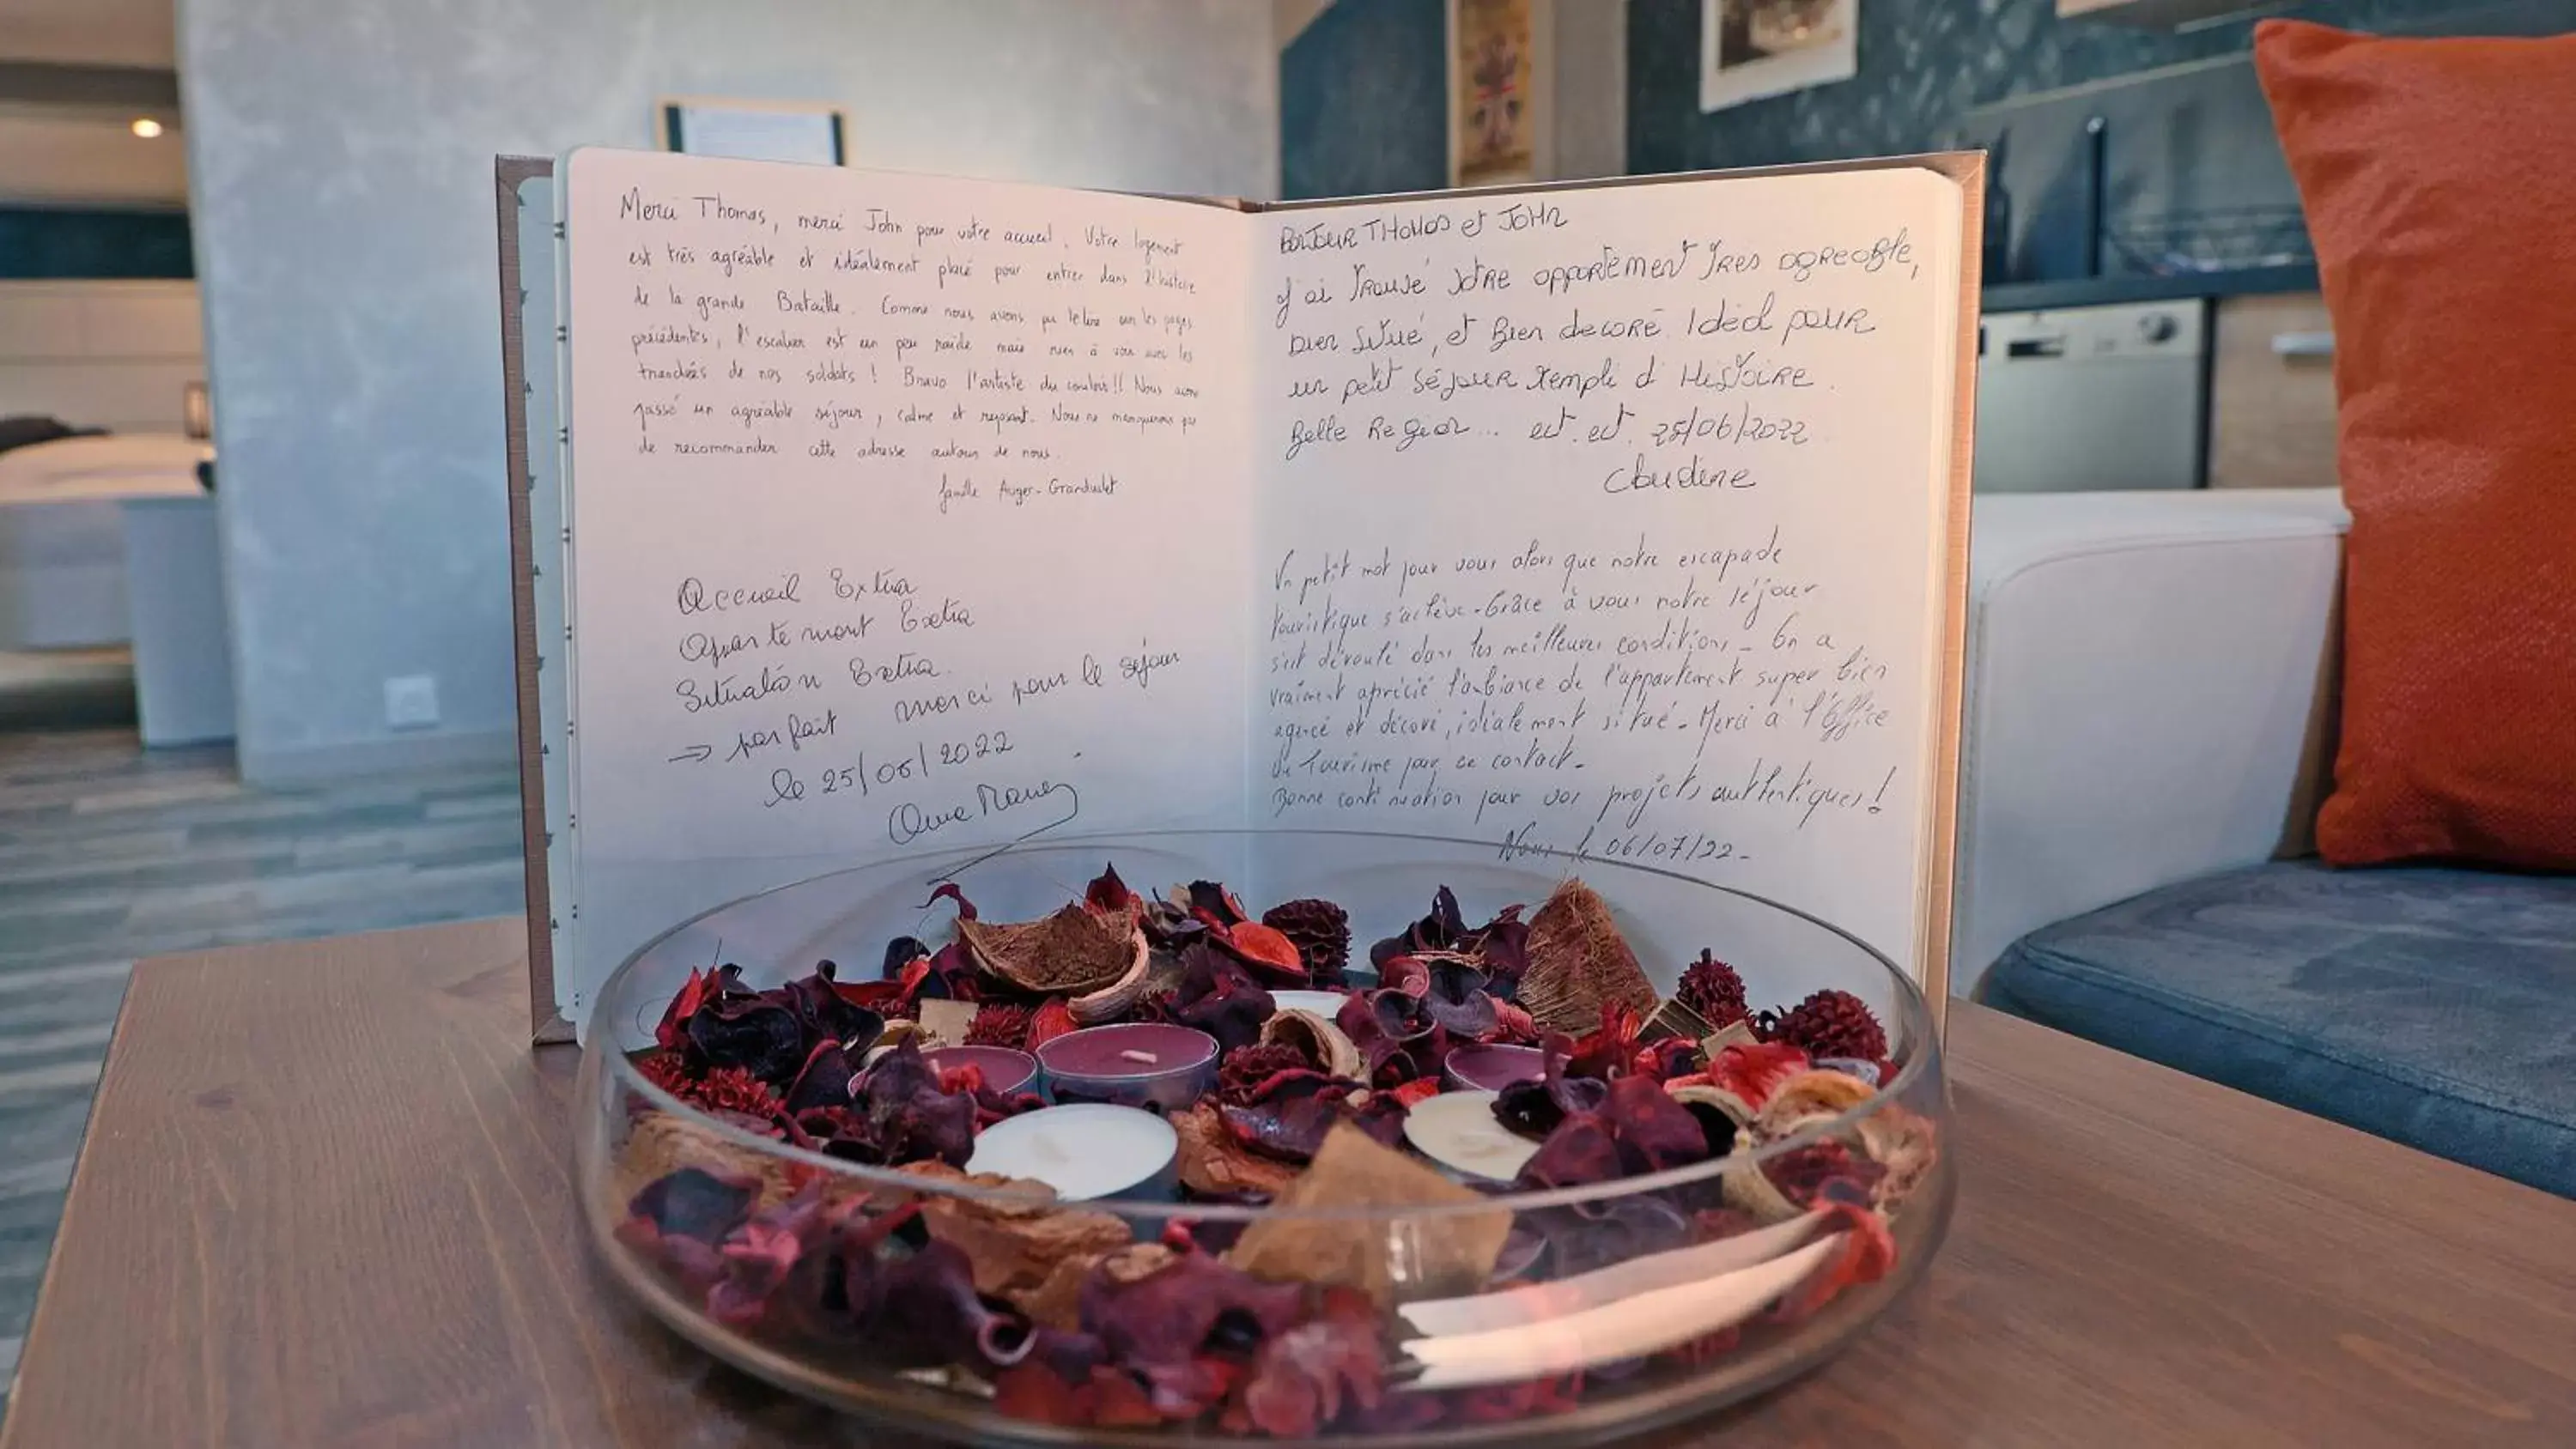 Merci Thomas, merci John pour votre accueil. Votre logement
est très agréable et idéalement placé pour entrer dans l'histoire
de la grande Bataille. Comme nous avons pu le lire sur les pages
précédentes, l'escalier est un peu raide mais rien à voir avec les
tranchées de nos soldats ! Bravo l'artiste du couloir !! Nous avons
passé un agréable séjour, calme et reposant. Nous ne manquerons pas
de recommander cette adresse autour de nous.
famille Auger-
Accueil Extra
Appartement Extra
Situation Extra.
→ parfait merci pour le séjour
le 25/06/2022
BONJOUR THOMAS et JOHN
J'ai trouvé votre appartement très agreable,
bien situé, et bien decoré. Ideal pour
un petit séjour rempli d'Histoire.
Belle Region... ect. ect. 25/06/2022
Claudine
Un petit mot pour vous alors que notre escapade
touristique s'achève. Grâce à vous notre séjour
s'est déroulé dans les meilleures conditions - On a
vraiment aprécié l'ambiance de l'appartement super bien
agencé et décoré, idéalement situé - Merci à l'Office
de Tourisme pour ce contact -
Bonne continuation pour vos projets authentiques !
le 06/07/22 -